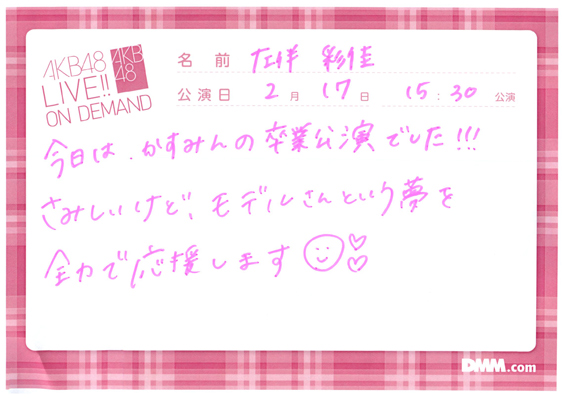 AKB48
LIVE!!
ON DEMAND
AKB
48
名前 左伴 彩佳
公演日 2月 17日 15:30 公演
今日は、かすみんの卒業公演でした!!!
さみしいけど、モデルさんという夢を
全力で応援します
DMM.com